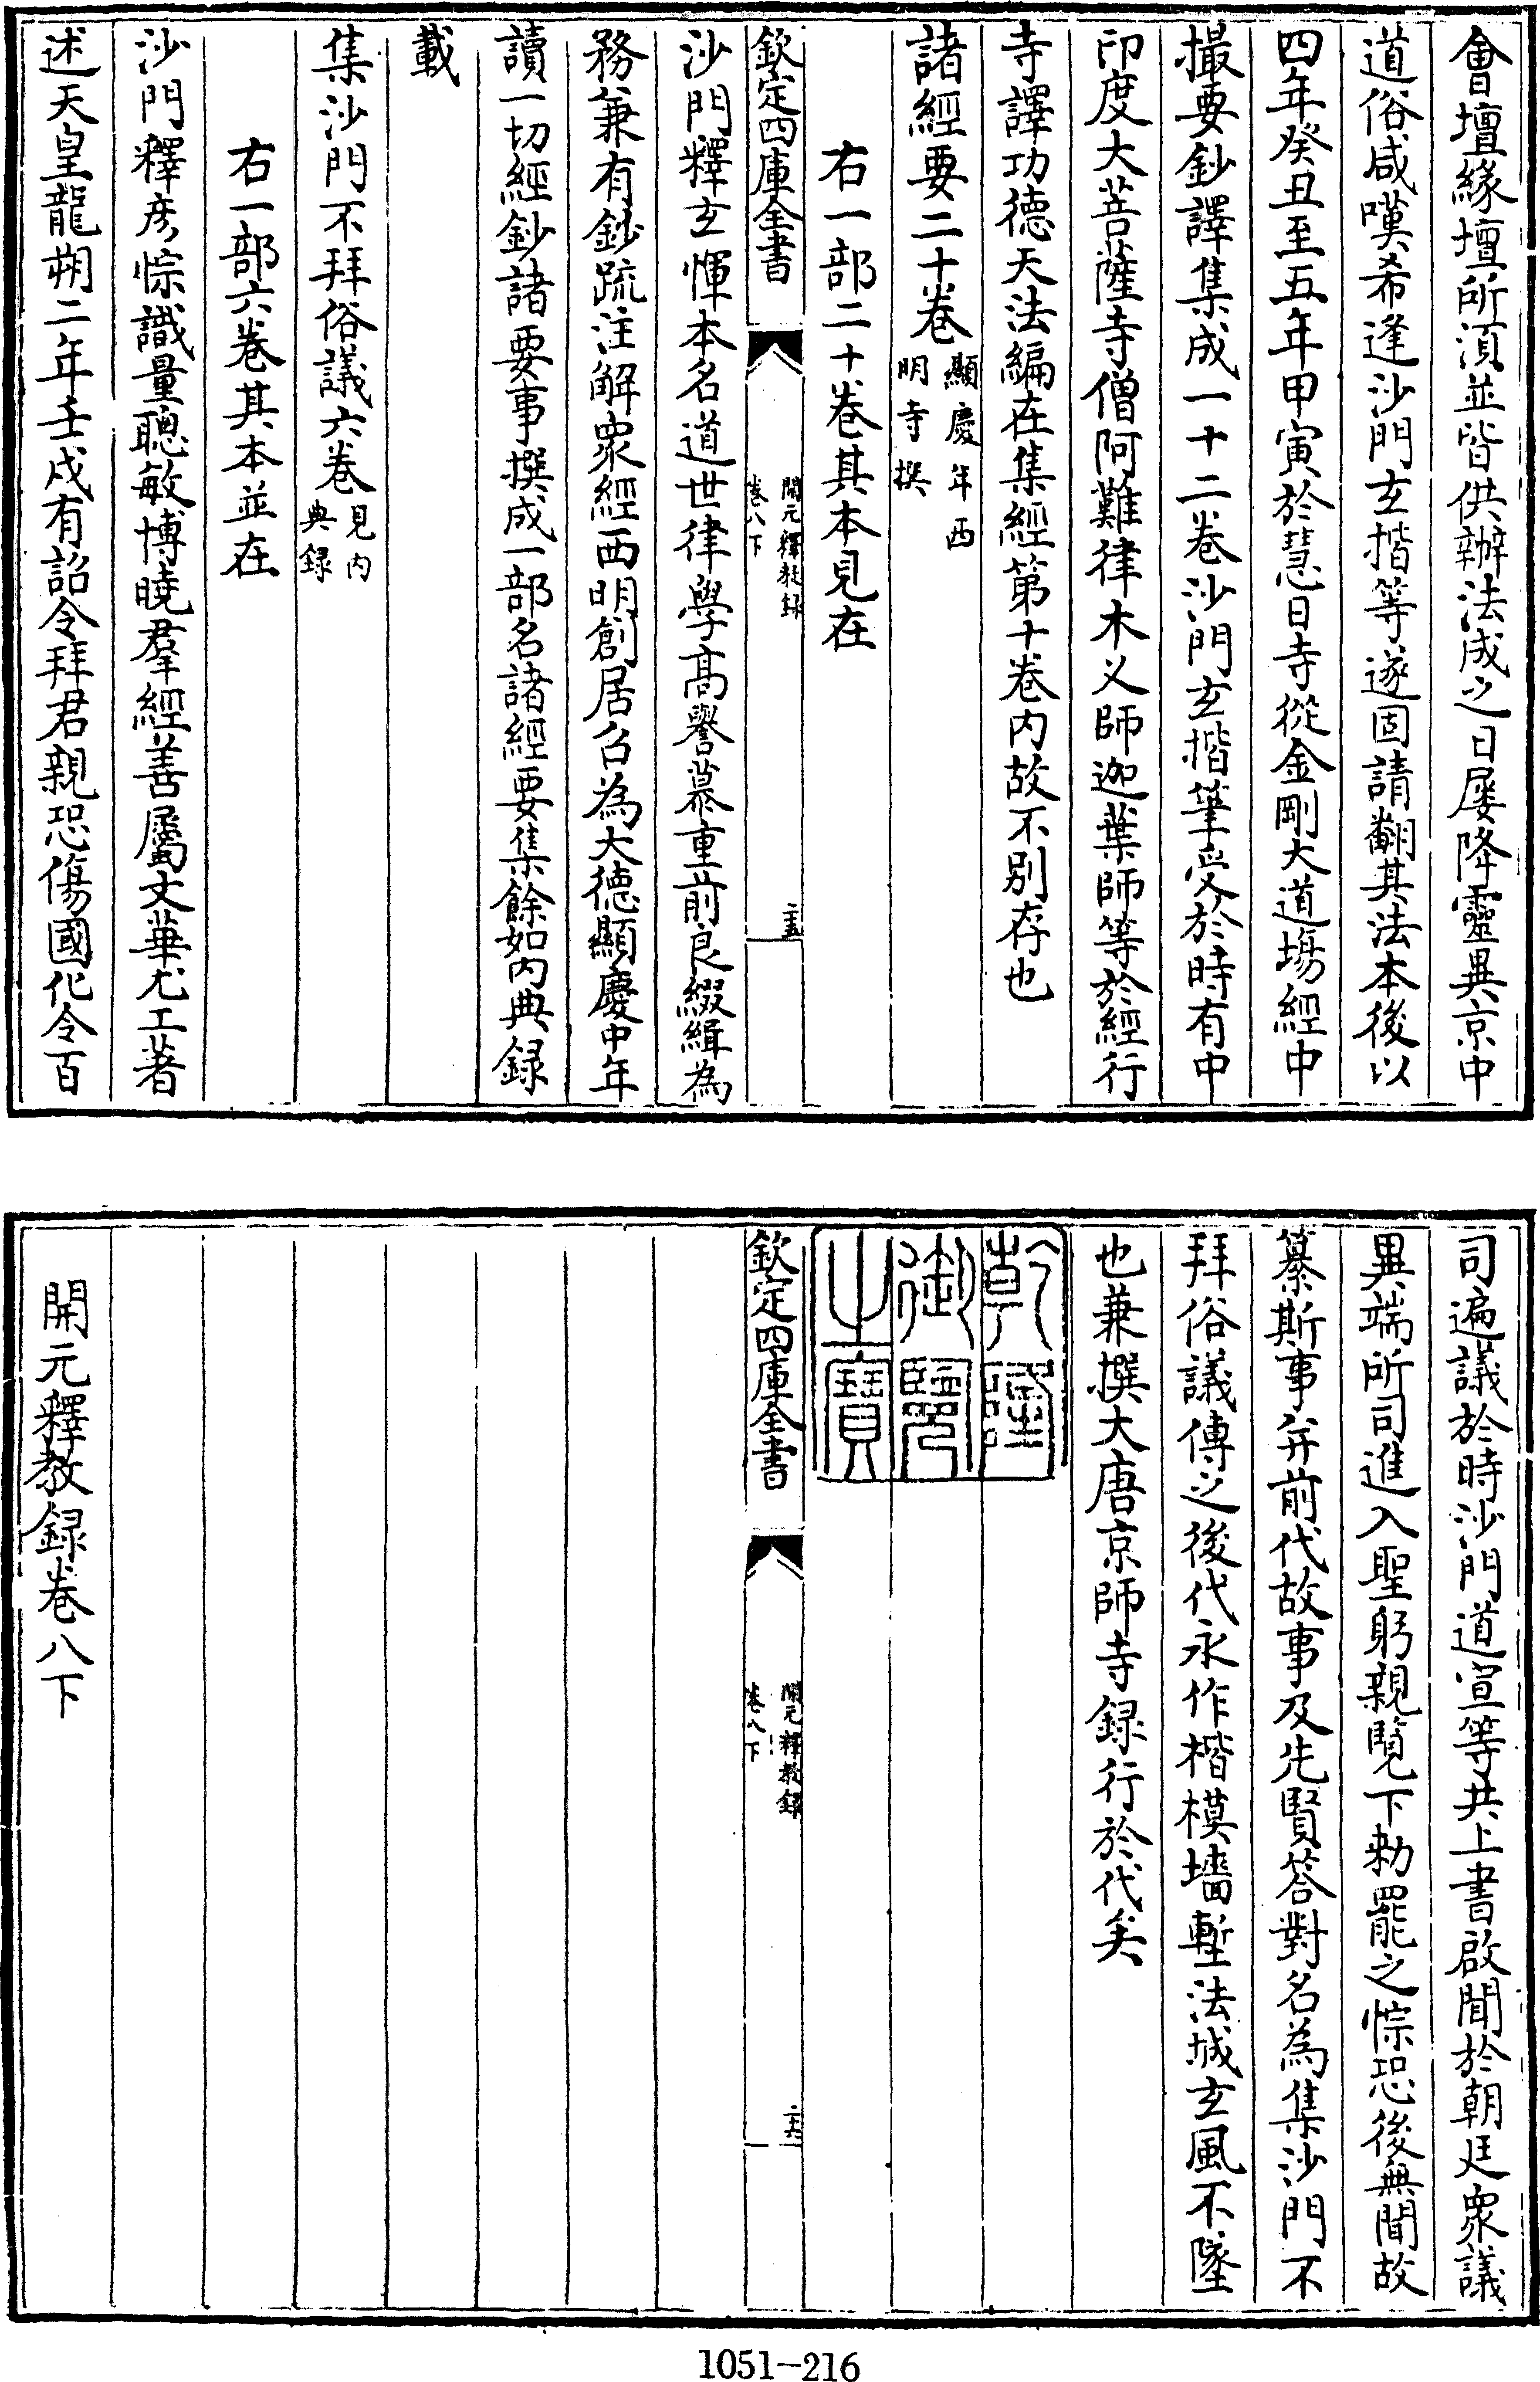 會壇緣壇所須並皆供辦法成之日屢降靈異京中
道俗咸嘆希逢沙門玄揩等遂固請翻其法本後以
四年癸丑至五年甲寅於慧日寺從金剛大道場經中
撮要鈔譯集成一十二卷沙門玄揩筆受於時有中
印度大菩薩寺僧阿難律木义師迦葉師等於經行
寺譯功德天法編在集經第十卷内故不別存也
諸經要二十卷顯慶年西
明寺撰
右一部二十卷其本見在
欽定四庫全書
開元釋教録
卷八下
二十五
沙門釋玄惲本名道世律學高譽慕重前良綴緝為
務兼有鈔疏注解衆經西明創居召為大德顯慶中年
讀一切經鈔諸要事撰成一部名諸經要集餘如内典録
載
集沙門不拜俗議六卷見内
典録
右一部六卷其本並在
沙門釋彦悰識量聰敏博曉羣經善屬文華尤工著
述天皇龍朔二年壬戌有詔令拜君親恐傷國化令百
司遍議於時沙門道宣等共上書啟聞於朝廷衆議
異端所司進入聖躬親覽下勅罷之悰恐後無聞故
纂斯事并前代故事及先賢答對名為集沙門不
拜俗議傳之後代永作楷模墻塹法城玄風不墜
也兼撰大唐京師寺録行於代矣
乾隆
御覽
之寶
欽定四庫全書
開元釋教録
卷八下
二十六
開元釋教録卷八下
1051-216